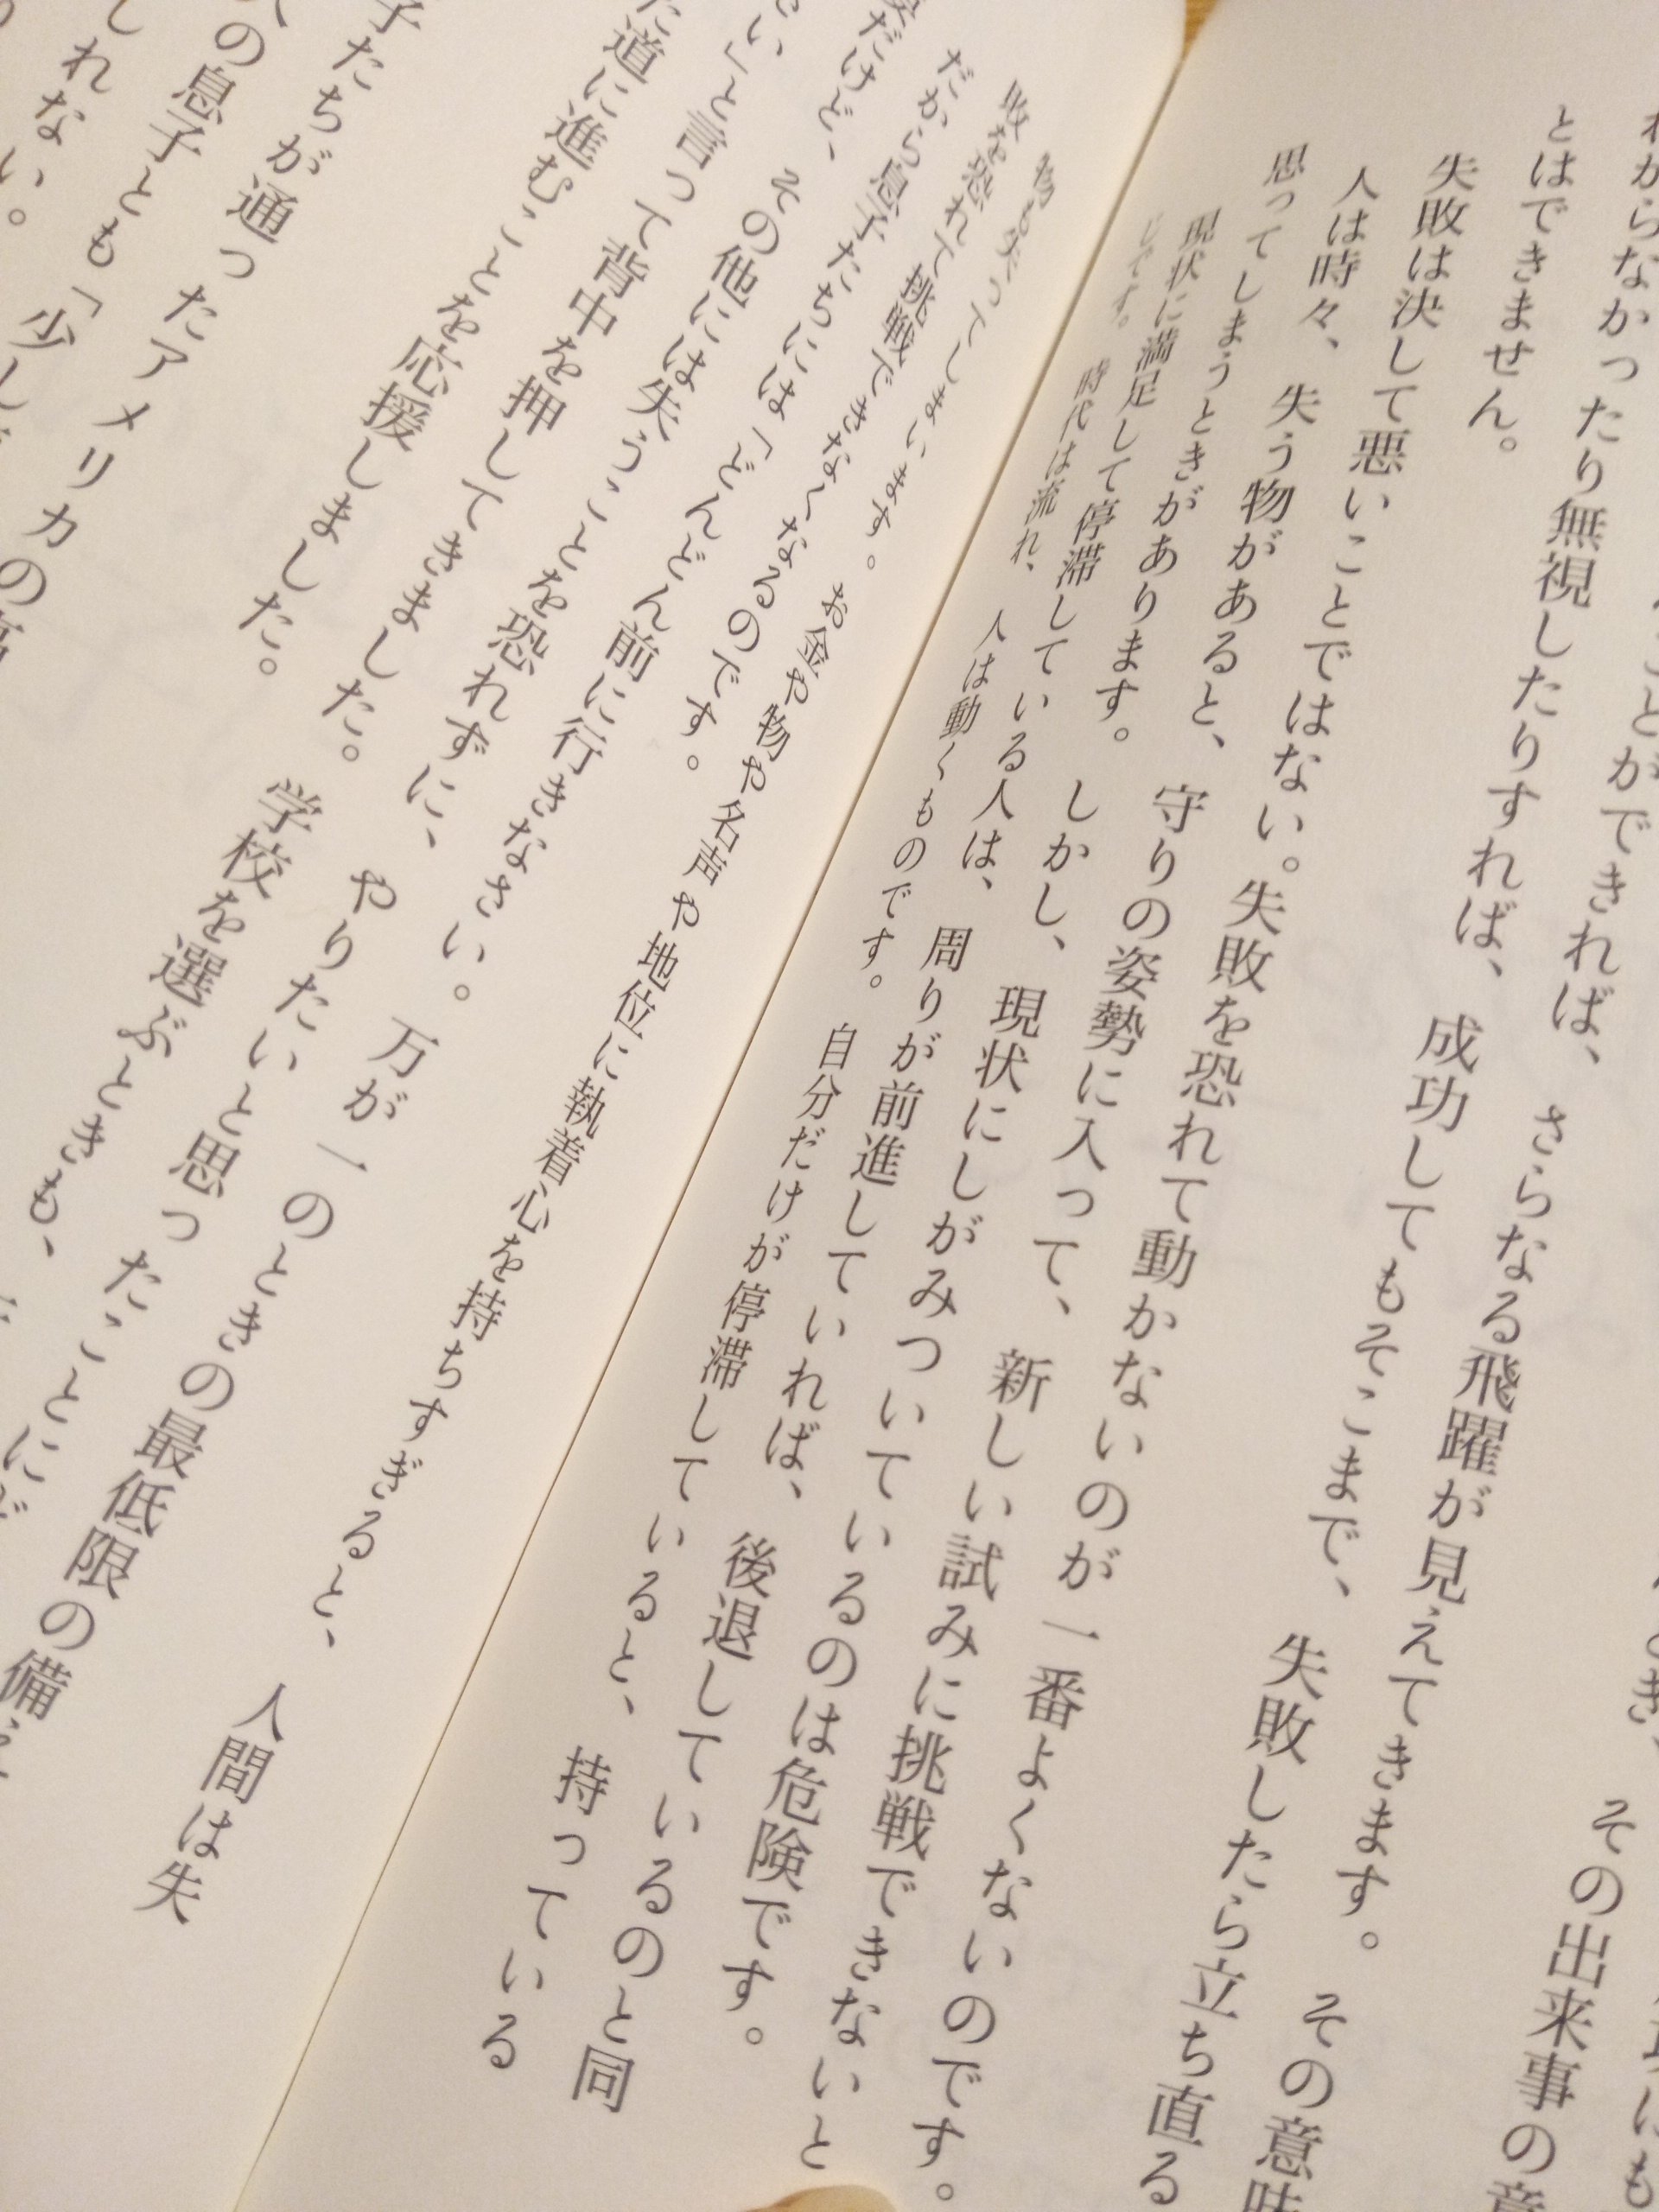 その出来事の
ことができれば、さらなる飛躍が見えてきます。その意味
わからなかったり無視したりすれば、成功してもそこまで、失敗したら立ち直る
とはできません。
失敗は決して悪いことではない。失敗を恐れて動かないのが一番よくないのです。
人は時々、失う物があると、守りの姿勢に入って、新しい試みに挑戦できないと
思ってしまうときがあります。しかし、現状にしがみついているのは危険です。
現状に満足して停滞している人は、周りが前進していれば、後退しているのと同
じです。時代は流れ、人は動くものです。自分だけが停滞していると、持っている
物も失ってしまいます。お金や物や名声や地位に執着心を持ちすぎると、人間は失
敗を恐れて挑戦できなくなるのです。
だから息子たちには「どんどん前に行きなさい。万が一のときの最低限の備え
だけど、その他には失うことを恐れずに、やりたいと思ったことに
い」と言って背中を押してきました。学校を選ぶときも、
た道に進むことを応援しました。
子たちが通ったアメリカの
の息子とも「少し
しれない。